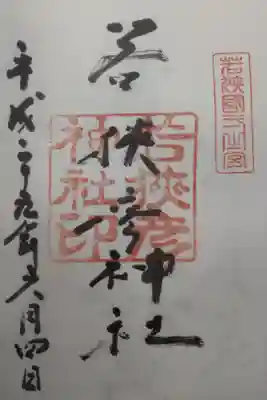 若狭國一之宮
若狭彦神社
若狭彦
神社印
平成二十九年六月四日